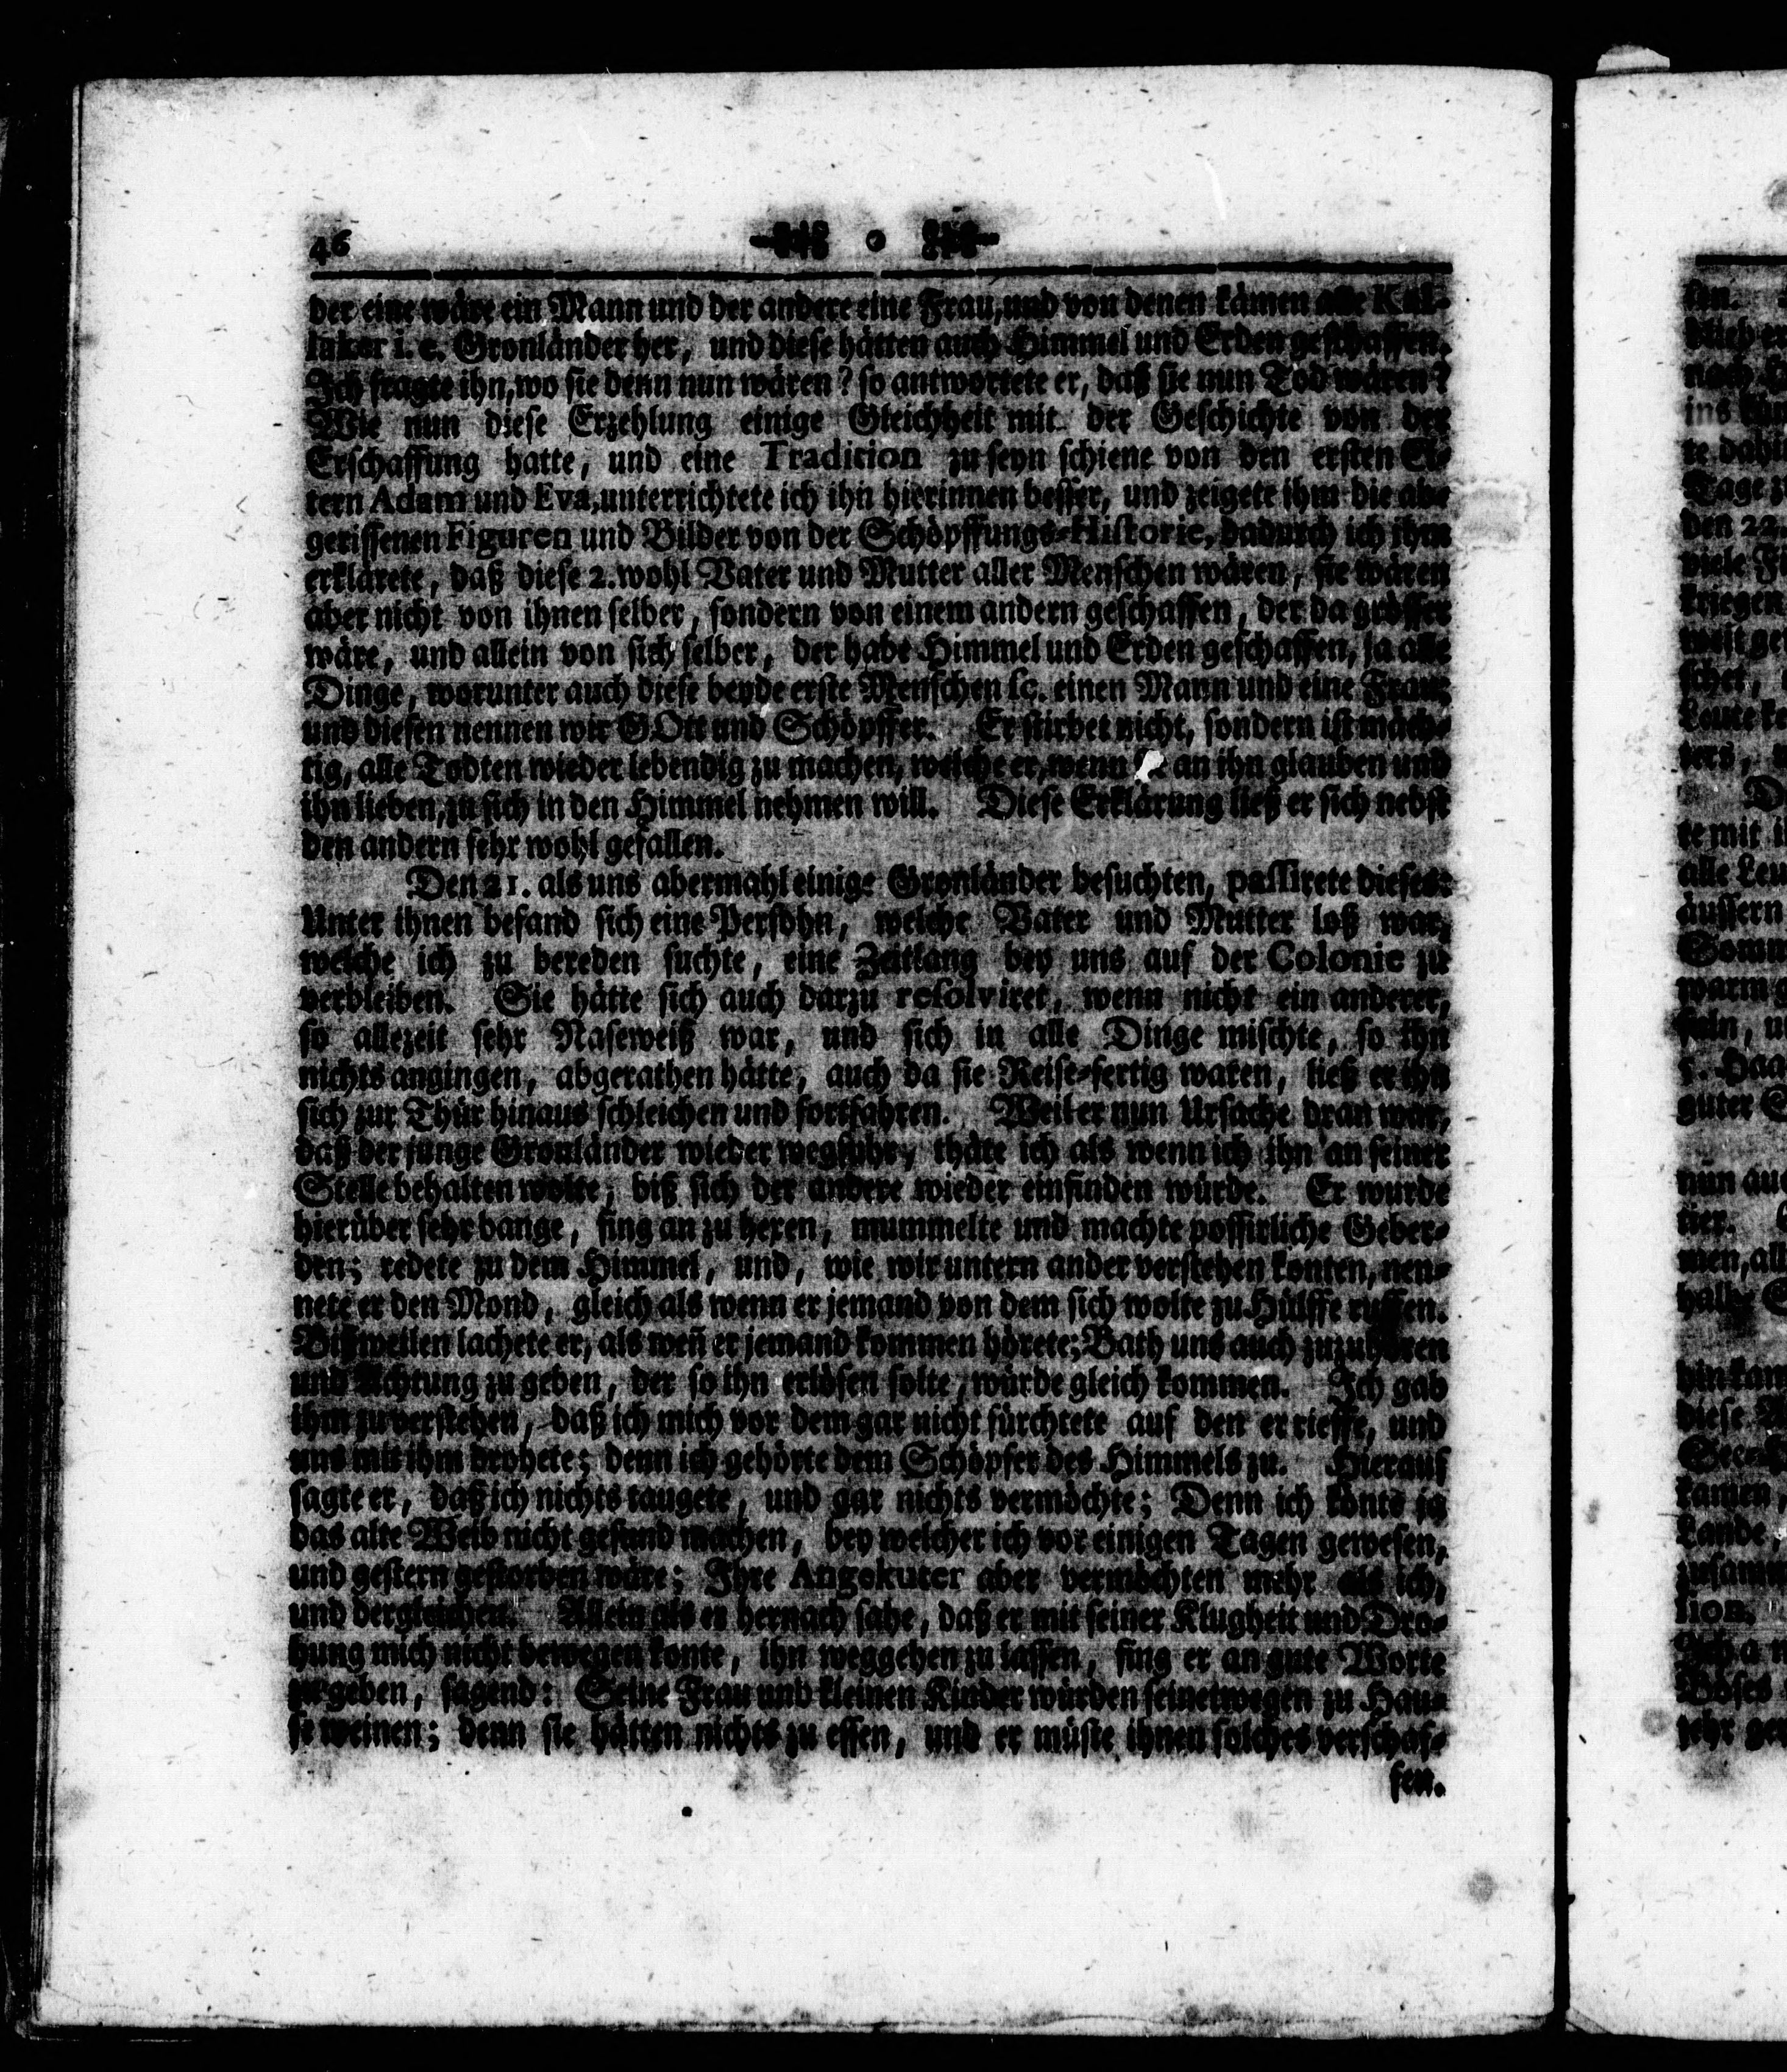 46
der eine wäre ein Mann und der andere eine Frau, und von denen kämen alle Kal-
laker i. e. Gronländer her, und diese hätten auch Himmel und Erden geschaffen.
Ich fragte ihn, wo sie denn nun wären? so antwortete er, daß sie nun Tod wären?
Wie nun diese Erzehlung einige Gleichheit mit der Geschichte von der
Erschaffung hatte, und eine Tradition zu seyn schiene von den ersten El-
tern Adam und Eva, unterrichtete ich ihn hierinnen besser, und zeigete ihm die abe
gerissenen Figuren und Bilder von der Schöpffungs-Historie, dadurch ich ihm
erklärete, daß diese 2. wohl Vater und Mutter aller Menschen wären, sie wären
aber nicht von ihnen selber, sondern von einem andern geschaffen, der da grösser
wäre, und allein von sich selber, der habe Himmel und Erden geschaffen, ja alle
Dinge, worunter auch diese beyde erste Menschen sc. einen Mann und eine Frau;
und diesen nennen wir GOtt und Schöpffer. Er stirbet nicht, sondern ist mäch-
tig, alle Todten wieder lebendig zu machen, welche er, wenn an ihn glauben und
ihn lieben, zu sich in den Himmel nehmen will. Diese Erklärung ließ er sich nebst
den andern sehr wohl gefallen.
Den 21. als uns abermahl einige Gronländer besuchten, passirete dieses:
Unter ihnen befand sich eine Persohn, welche Vater und Mutter loß war,
welche ich zu bereden suchte, eine Zeitlang bey uns auf der Colonie zu
verbleiben. Sie hätte sich auch darzu resolviret, wenn nicht ein anderer,
so allezeit sehr Naseweiß war, und sich in alle Dinge mischte, so ihn
nichts angingen, abgerathen hätte, auch da sie Reise-fertig waren, ließ er ihn
sich zur Thür hinaus schleichen und fortfahren. Weil er nun Ursache dran war,
daß der junge Gronländer wieder wegfuhr, thäte ich als wenn ich ihn an seiner
Stelle behalten wolte, biß sich der andere wieder einfinden würde. Er wurde
hierüber sehr bange, fing an zu hexen, mummelte und machte possirliche Geber-
den; redete zu dem Himmel, und, wie wir untern ander verstehen konten, nen-
nete er den Mond, gleich als wenn er jemand von dem sich wolte zu Hülffe ruffen.
Bißweilen lachete er, als weñ er jemand kommen hörete; Bath uns auch zuzuhören
und Achtung zu geben, der so ihn erlösen solte, würde gleich kommen. Ich gab
ihm zu verstehen, daß ich mich vor dem gar nicht fürchtete auf den er rieffe, und
uns mit ihm drohete; denn ich gehörte dem Schöpfer des Himmels zu. Hierauf
sagte er, daß ich nichts taugete, und gar nichts vermöchte; Denn ich könte ja
das alte Weib nicht gesund machen, bey welcher ich vor einigen Tagen gewesen,
und gestern gestorben wäre; Ihre Angekuter aber vermöchten mehr als ich,
und dergleichen. Allein als er hernach sahe, daß er mit seiner Klugheit und Dro-
hung mich nicht bewegen konte, ihn weggehen zu lassen, fing er an gute Worte
zu geben, sagend: Seine Frau und kleinen Kinder würden seinetwegen zu Hau-
se weinen; denn sie hätten nichts zu essen, und er müste ihnen solches verschaf-
fen.